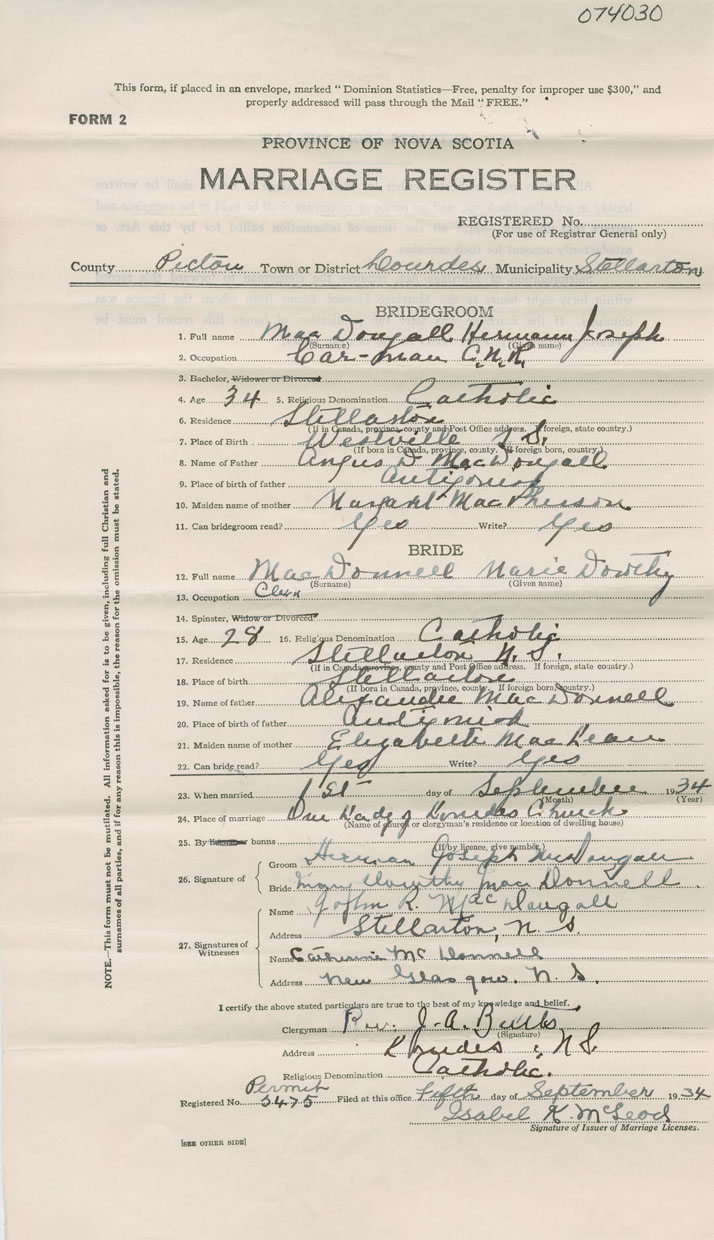 074030
This form, if placed in an envelope, marked "Dominion Statistics—Free, penalty for improper use $300," and
properly addressed will pass through the Mail "FREE."
FORM 2
PROVINCE OF NOVA SCOTIA
MARRIAGE REGISTER
REGISTERED No.
(For use of Registrar General only)
County Pictou Town or District Lourdes Municipality Stellarton
BRIDEGROOM
1. Full name MacDougall Hermann Joseph
(Surname) (Given name)
2. Occupation Car-man C.N.R.
3. Bachelor, Widower or Divorced
4. Age 34 5. Religious Denomination Catholic
6. Residence Stellarton
(If in Canada, province, county and Post Office address. If foreign, state country.)
7. Place of Birth Westville N.S.
(If born in Canada, province, county. If foreign born, country.)
8. Name of Father Angus D. MacDougall
9. Place of birth of father Antigonish
10. Maiden name of mother Margaret MacPherson
11. Can bridegroom read? Yes Write? Yes
BRIDE
12. Full name MacDonnell Marie Dorothy
(Surname) (Given name)
13. Occupation Clerk
14. Spinster, Widow or Divorced
15. Age 28 16. Religious Denomination Catholic
17. Residence Stellarton N.S.
(If in Canada, province, county and Post Office address. If foreign, state country.)
18. Place of birth Stellarton
(If born in Canada, province, county. If foreign born, country.)
19. Name of father Alexander MacDonnell
20. Place of birth of father Antigonish
21. Maiden name of mother Elizabeth MacLean
22. Can bride read? Yes Write? Yes
23. When married 1st day of September 1934
(Month) (Year)
24. Place of marriage Our Lady of Lourdes Church
(Name of church or clergyman's residence or location of dwelling house)
25. By license or banns
(If by licence, give number)
26. Signature of
Groom Herman Joseph McDougall
Bride Dorothy MacDonnell
27. Signatures of Witnesses
Name John R. MacDougall
Address Stellarton, N.S.
Name Catherine McDonnell
Address New Glasgow, N.S.
I certify the above stated particulars are true to the best of my knowledge and belief.
Clergyman Rev. J. A. Butts
(Signature)
Address Lourdes, N.S.
Religious Denomination Catholic.
Permit
Registered No. 3475 Filed at this office fifth day of September 1934
Isabel K. McLeod
Signature of Issuer of Marriage Licenses.
[SEE OTHER SIDE]
NOTE.—This form must not be mutilated. All information asked for is to be given, including full Christian and
surnames of all parties, and if for any reason this is impossible, the reason for the omission must be stated.